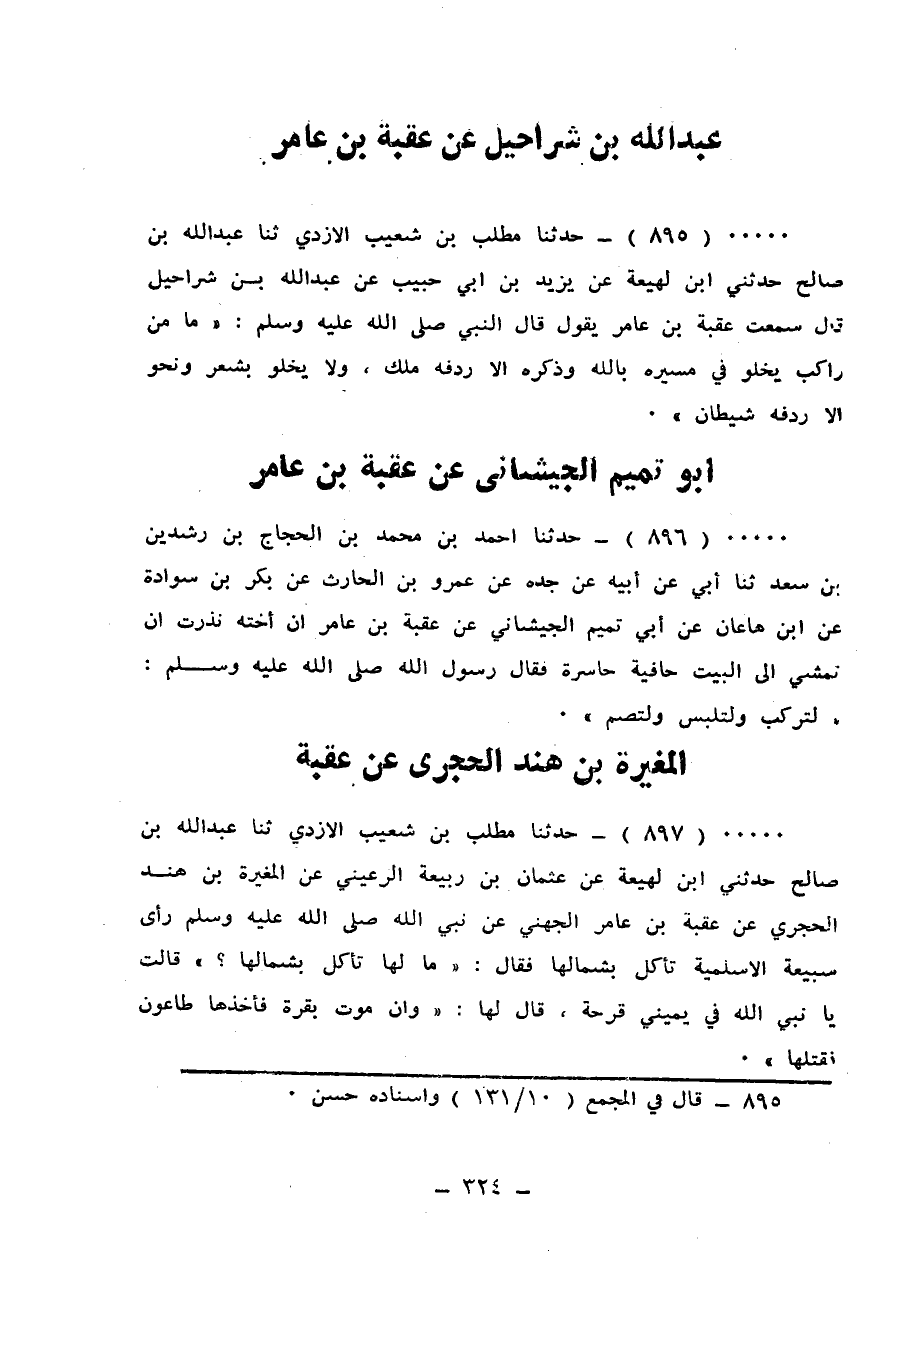 عبدالله بن شراحيل عن عقبة بن عامر
..... ( ٨٩٥ ) ــ حدثنا مطلب بن شعيب الازدي ثنا عبدالله بن
صالح حدثني ابن لهيعة عن يزيد بن ابي حبيب عن عبدالله بــن شراحيل
قال سمعت عقبة بن عامر يقول قال النبي صلى الله عليه وسلم : « ما من
راكب يخلو في مسيره بالله وذكره الا ردفه ملك ، ولا يخلو بشعر ونحو
الا ردفه شيطان » .
ابو تميم الجيشانى عن عقبة بن عامر
..... ( ٨٩٦ ) ــ حدثنا احمد بن محمد بن الحجاج بن رشدين
بن سعد ثنا أبي عن أبيه عن جده عن عمرو بن الحارث عن بكر بن سوادة
عن ابن هاعان عن أبي تميم الجيشاني عن عقبة بن عامر ان أخته نذرت ان
تمشي الى البيت حافية حاسرة فقال رسول الله صلى الله عليه وســـلم :
« لتركب ولتلبس ولتصم » .
المغيرة بن هند الحجرى عن عقبة
..... ( ٨٩٧ ) ــ حدثنا مطلب بن شعيب الازدي ثنا عبدالله بن
صالح حدثني ابن لهيعة عن عثمان بن ربيعة الرعيني عن المغيرة بن هنــد
الحجري عن عقبة بن عامر الجهني عن نبي الله صلى الله عليه وسلم رأى
سبيعة الاسلمية تأكل بشمالها فقال : « ما لها تأكل بشمالها ؟ » قالت
يا نبي الله في يميني قرحة ، قال لها : « وان موت بقرة فأخذها طاعون
فقتلها » .
٨٩٥ ــ قال في المجمع ( ١٠/١٣١ ) واسناده حسن .
ــ ٣٢٤ ــ